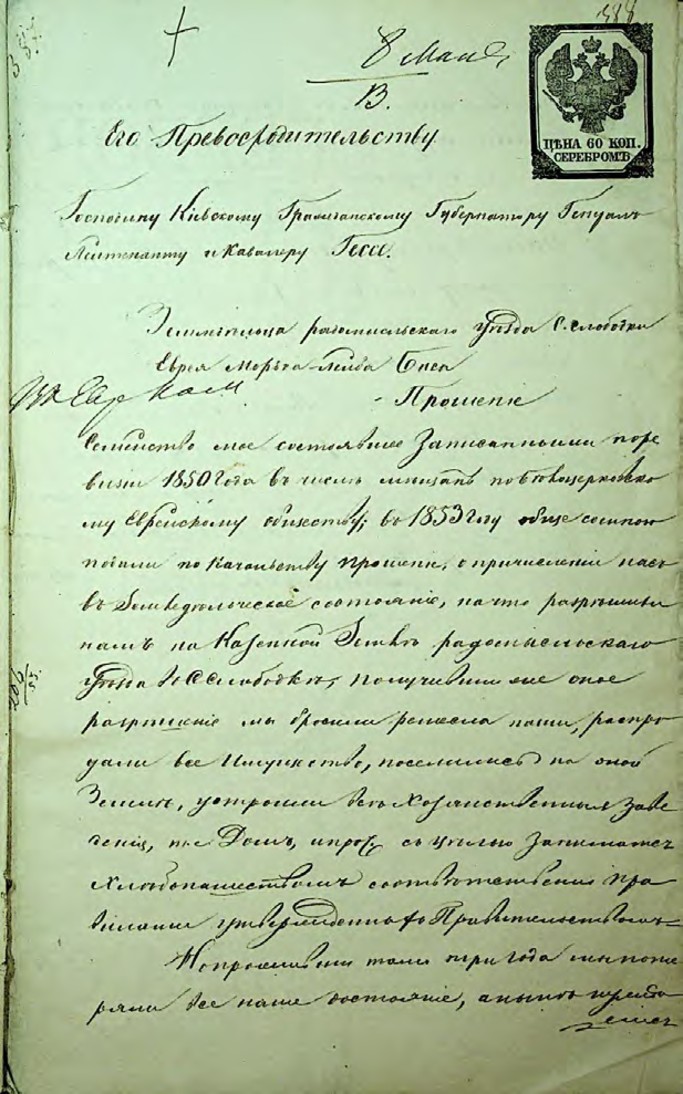 388
8 Мая
В.
ЦѢНА 60 КОП.
СЕРЕБРОМЪ
Его Превосходительству
Господину Кіевскому Гражданскому Губернатору Генералъ
Лейтенанту и Кавалеру Гессе.
Земледѣльца радомысльскаго уѣзда С. Слободки
Еврея Лейба
Прошеніе
Семейство мое состоявшее Записанными по ре
визіи 1850 Года въ число мѣщанъ по бѣлоцерковско
му Еврейскому обществу; въ 1853 Году обще со мною
подали по Начальству прошеніе, о причисленіи насъ
въ Земледѣлческое состояніе, на что разрѣшили
намъ на Казенной Землѣ радомысльскаго
уѣзда в С Слободкѣ, получивши же оное
разрѣшеніе мы бросили ремесла наши, распро
дали все Имущество, поселились на оной
Землѣ, устроили всѣ Хозяйственныя Заве
денія, т. е. Домъ, и проч. съ цѣлью Заниматся
Хлѣбопашествомъ соотвѣтственно пра
виламъ утвержденнаго Правительствомъ=
Но проживши тамъ три года мы поте
ряли все наше достояніе, а нынѣ